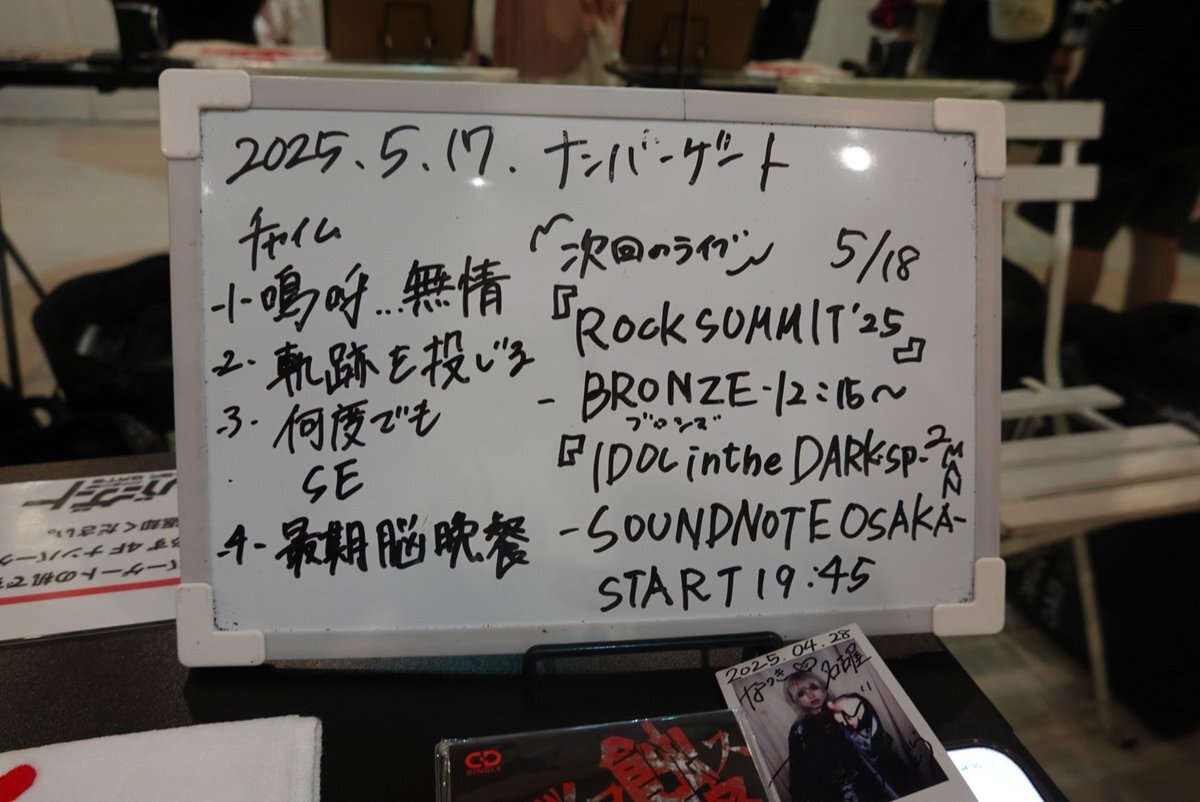 2025.5.17. ナンバーゲート
チャイム
-1- 嗚呼...無情
-2- 軌跡を投じる
-3- 何度でも
SE
-4- 最期脳晩餐
〜次回のライブ〜 5/18
『ROCK SUMMIT'25』
- BRONZE - 12:15〜
ブロンズ
『IDOL in the DARK sp. 2MAN
- SOUNDNOTE OSAKA -
START 19:45
2025.04.28
なつき♡名古屋
CD
SINGLE